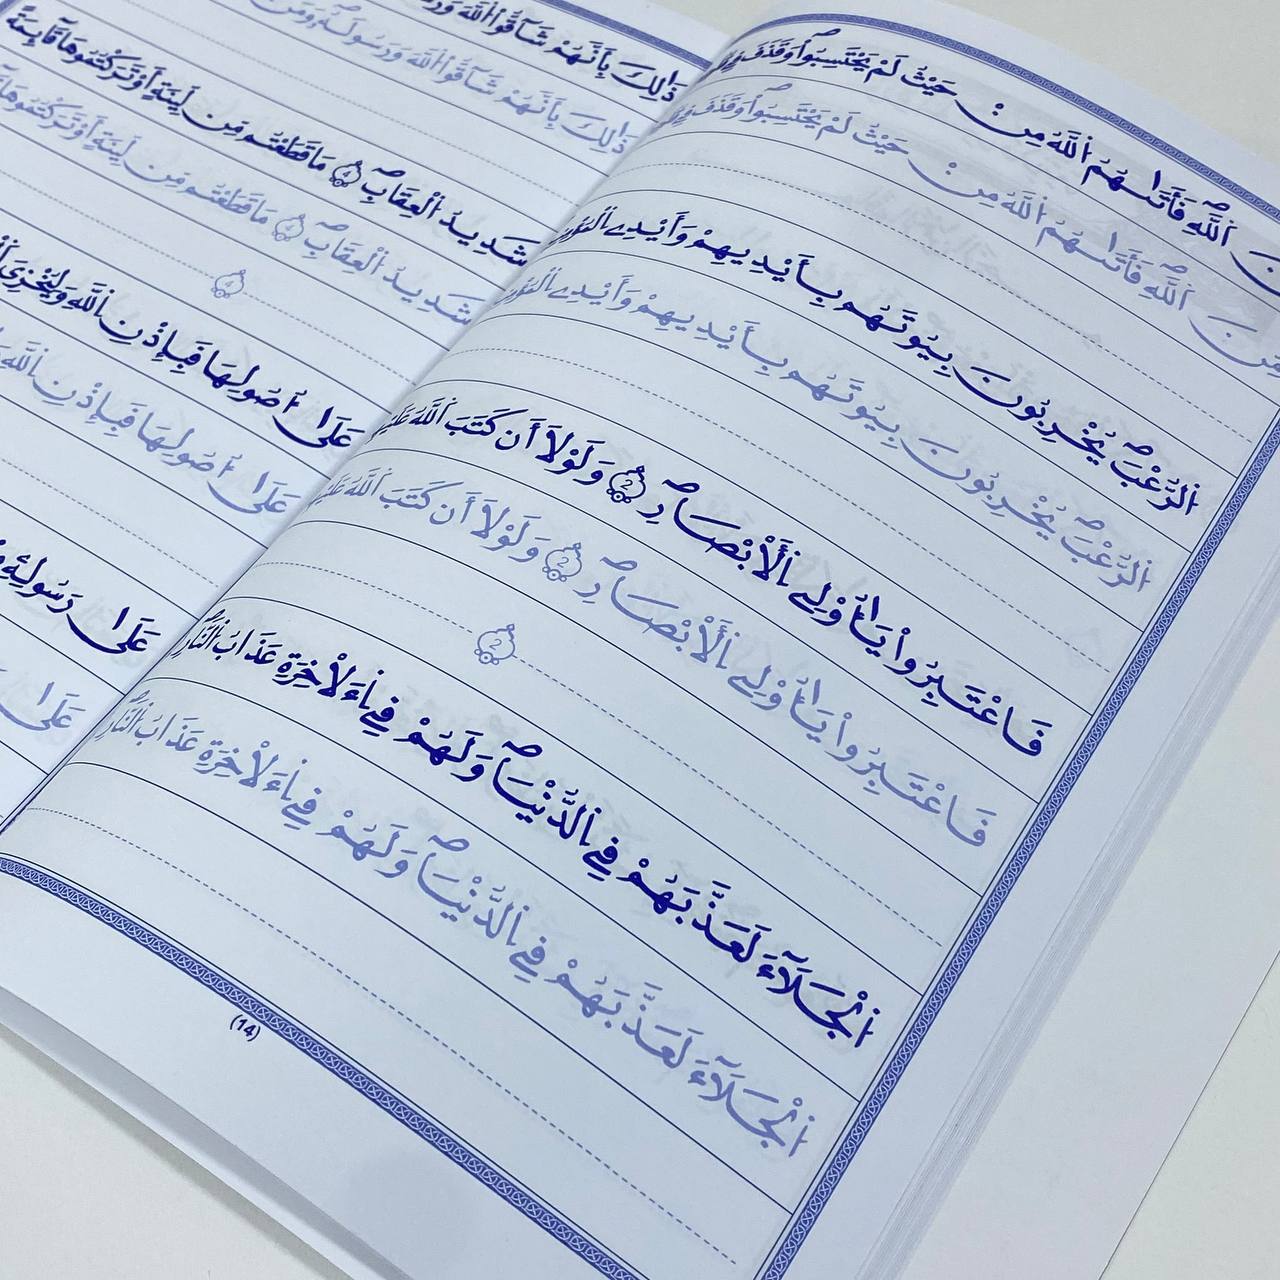 مِّنَ اَ۬للَّهِ فَأَتَىٰهُمُ اُ۬للَّهُ مِنْ حَيْثُ لَمْ يَحْتَسِبُواْ وَقَذَفَ فِے
مِّنَ اَ۬للَّهِ فَأَتَىٰهُمُ اُ۬للَّهُ مِنْ حَيْثُ لَمْ يَحْتَسِبُواْ وَقَذَفَ فِے
اِ۬لرُّعْبَۖ يُخْرِبُونَ بِيُوتَهُم بِأَيْدِيهِمْ وَأَيْدِے
اِ۬لرُّعْبَۖ يُخْرِبُونَ بِيُوتَهُم بِأَيْدِيهِمْ وَأَيْدِے
فَاعْتَبِرُواْ يَٰٓأُوْلِے اِ۬لَأبْصَٰرِۖ 2 وَلَوْلَآ أَن كَتَبَ اَ۬للَّهُ
فَاعْتَبِرُواْ يَٰٓأُوْلِے اِ۬لَأبْصَٰرِۖ 2 وَلَوْلَآ أَن كَتَبَ اَ۬للَّهُ
2
اُ۬لْجَلَآءَ لَعَذَّبَهُمْ فِے اِ۬لدُّنْيَاۖ وَلَهُمْ فِے اِ۬ءَلَاخِرَةِ عَذَابُ اُ۬لنَّارِ
اُ۬لْجَلَآءَ لَعَذَّبَهُمْ فِے اِ۬لدُّنْيَاۖ وَلَهُمْ فِے اِ۬ءَلَاخِرَةِ عَذَابُ اُ۬لنَّارِ
(14)
ذَٰلِكَ بِأَنَّهُمْ شَآقُّواْ اُ۬للَّهَ
ذَٰلِكَ بِأَنَّهُمْ شَآقُّواْ اُ۬للَّهَ وَرَسُولَهُۥۖ وَمَنْ
شَدِيدُ اُ۬لْعِقَابِۖ 4 مَا قَطَعْتُم مِّن لِّينَةٍ اَوْ تَرَكْتُمُوهَا قَآئِمَةً
شَدِيدُ اُ۬لْعِقَابِۖ 4 مَا قَطَعْتُم مِّن لِّينَةٍ اَوْ تَرَكْتُمُوهَا
4
عَلَىٰٓ أُصُولِهَا فَبِإِذْنِ اِ۬للَّهِ وَلِيُخْزِيَ
عَلَىٰٓ أُصُولِهَا فَبِإِذْنِ اِ۬للَّهِ
عَلَىٰ رَسُولِهِۦ
عَلَىٰ